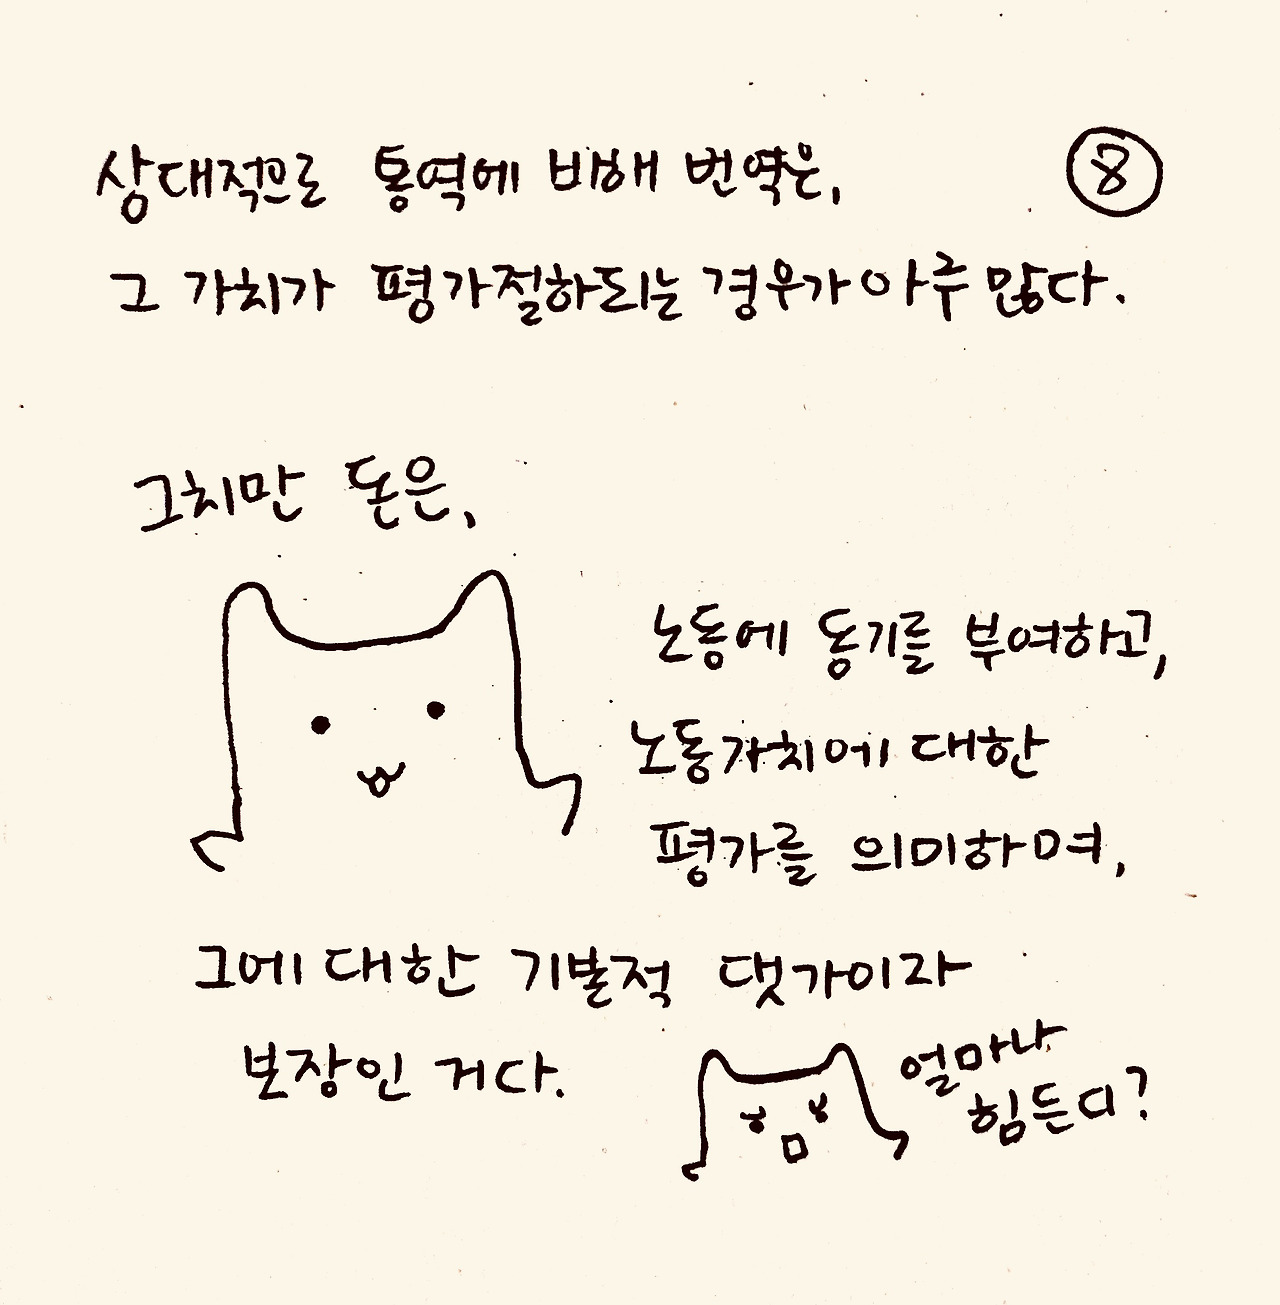 상대적으로 통역에 비해 번역은,
⑧
그 가치가 평가절하되는 경우가 아주 많다.
그치만 돈은,
노동에 동기를 부여하고,
노동가치에 대한
평가를 의미하며,
그에 대한 기본적 댓가이자
보장인 거다.
얼마나
힘든디?